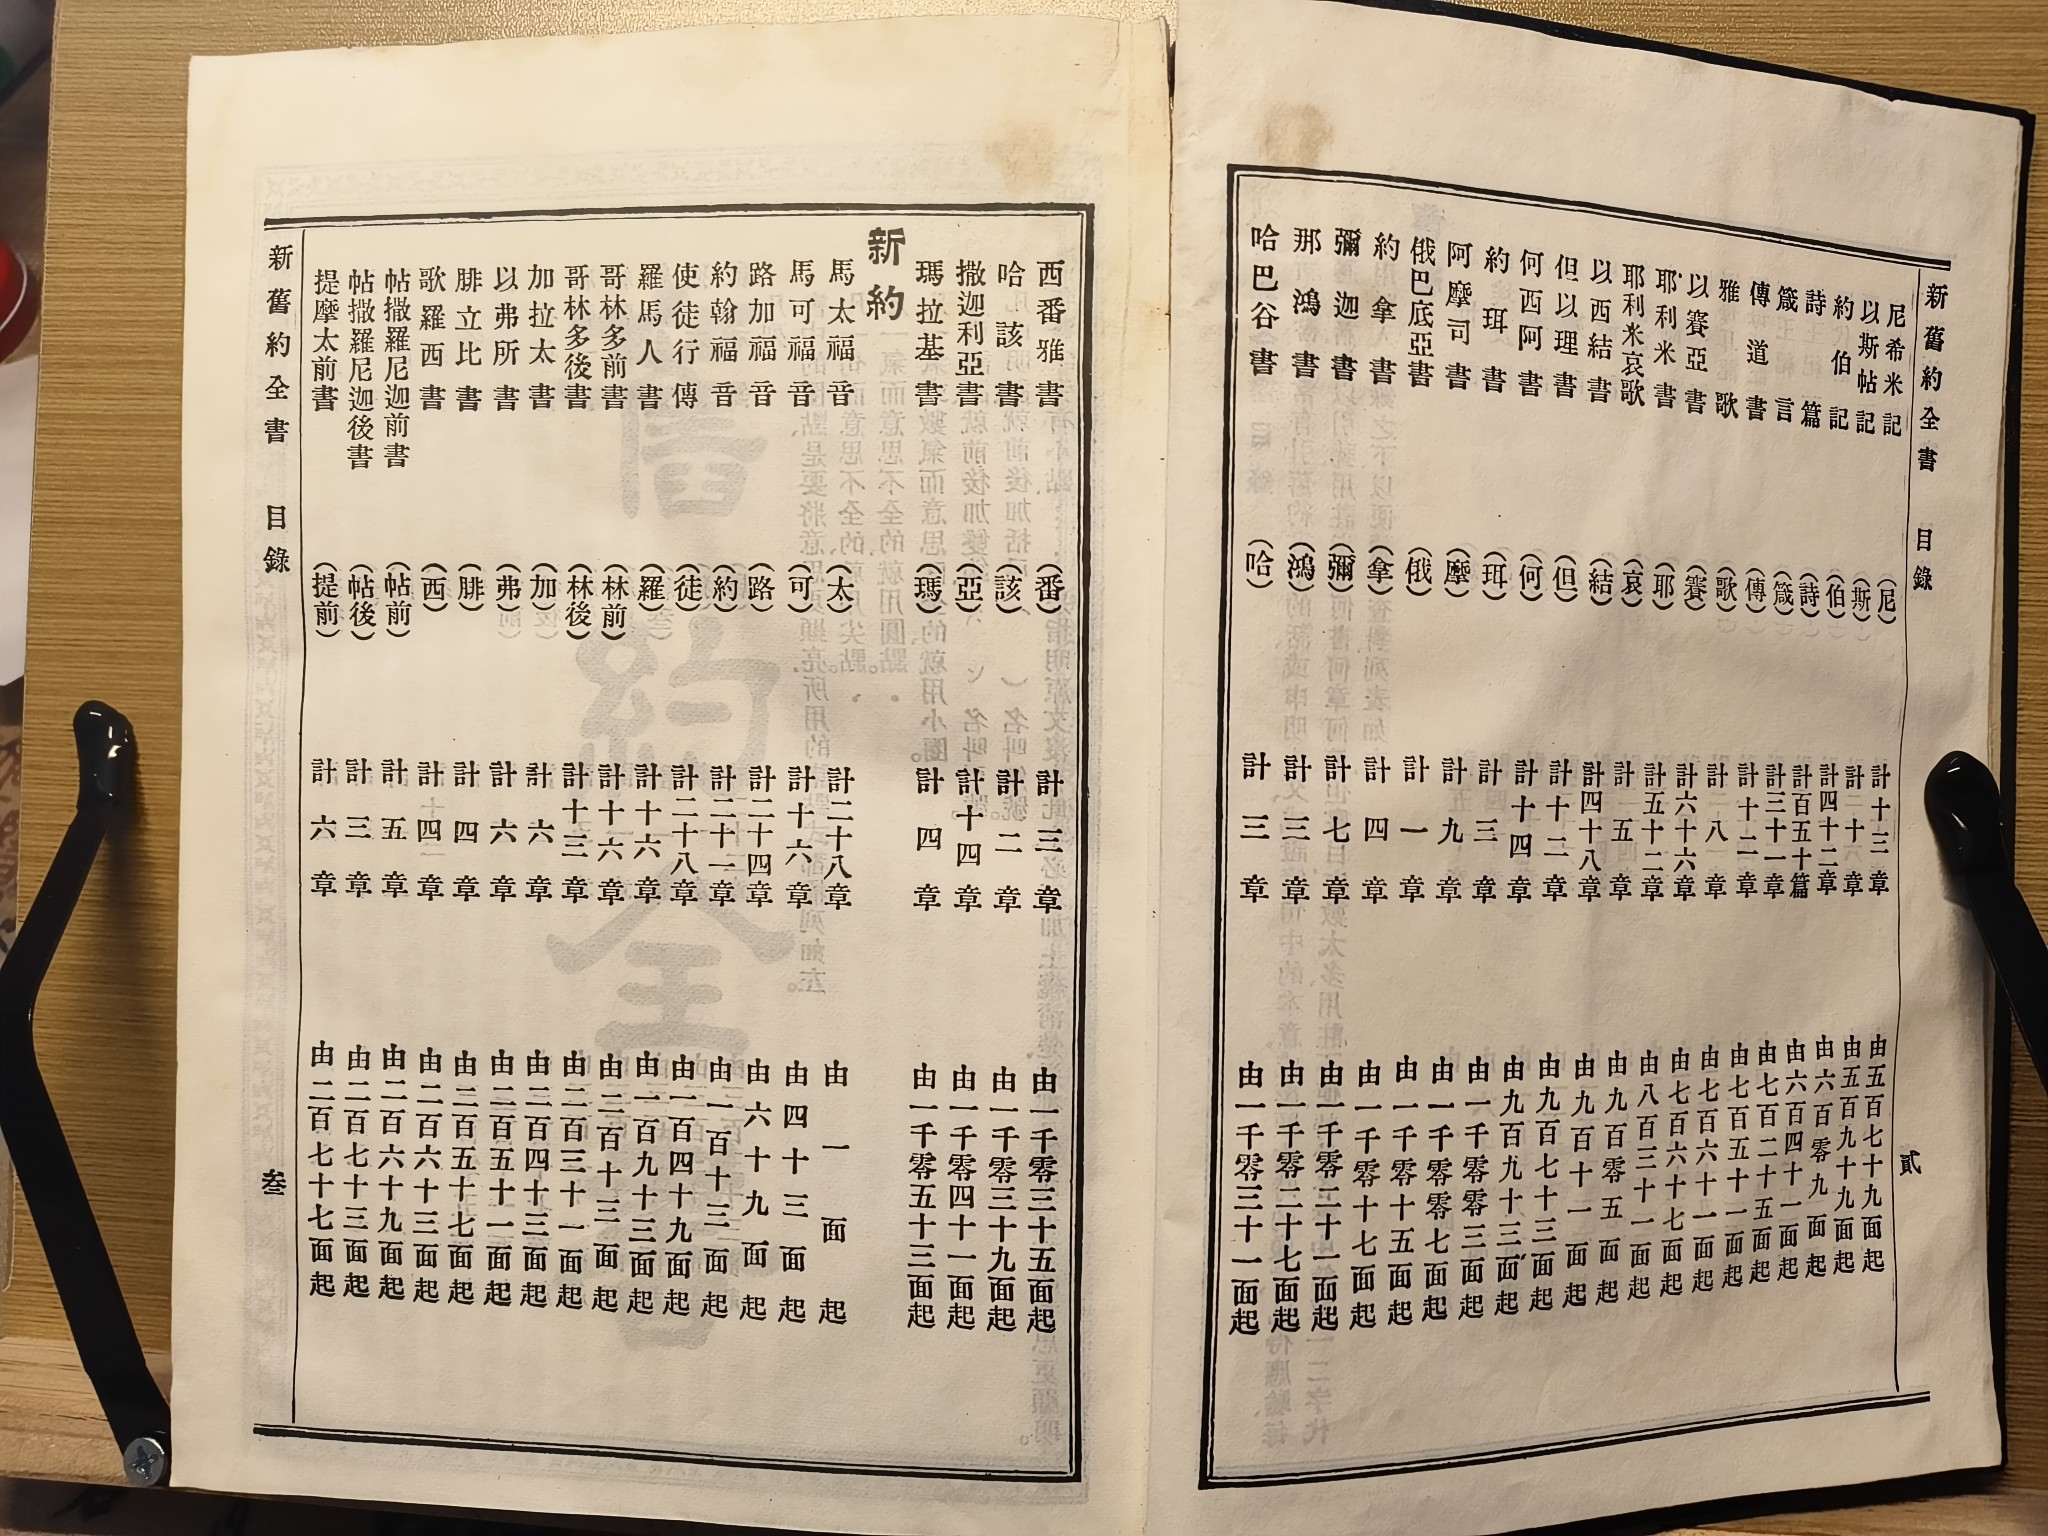 新舊約全書 目錄 貳
尼希米記 (尼) 計十三章 由五百七十九面起
以斯帖記 (斯) 計二十六章 由五百九十九面起
約伯記 (伯) 計四十二章 由六百零九面起
詩篇 (詩) 計百五十篇 由六百四十一面起
箴言 (箴) 計三十一章 由七百二十五面起
傳道書 (傳) 計十二章 由七百五十一面起
雅歌 (歌) 計八章 由七百六十一面起
以賽亞書 (賽) 計六十六章 由七百六十七面起
耶利米書 (耶) 計五十二章 由八百三十一面起
耶利米哀歌 (哀) 計五章 由九百零五面起
以西結書 (結) 計四十八章 由九百十一面起
但以理書 (但) 計十二章 由九百七十三面起
何西阿書 (何) 計十四章 由九百九十三面起
約珥書 (珥) 計三章 由一千零零三面起
阿摩司書 (摩) 計九章 由一千零零七面起
俄巴底亞書 (俄) 計一章 由一千零十五面起
約拿書 (拿) 計四章 由一千零十七面起
彌迦書 (彌) 計七章 由一千零二十一面起
那鴻書 (鴻) 計三章 由一千零二十七面起
哈巴谷書 (哈) 計三章 由一千零三十一面起
西番雅書 (番) 計三章 由一千零三十五面起
哈該書 (該) 計二章 由一千零三十九面起
撒迦利亞書 (亞) 計十四章 由一千零四十一面起
瑪拉基書 (瑪) 計四章 由一千零五十三面起
新約
馬太福音 (太) 計二十八章 由一面起
馬可福音 (可) 計十六章 由四十三面起
路加福音 (路) 計二十四章 由六十九面起
約翰福音 (約) 計二十一章 由一百十三面起
使徒行傳 (徒) 計二十八章 由一百四十九面起
羅馬人書 (羅) 計十六章 由一百九十三面起
哥林多前書 (林前) 計十六章 由二百十三面起
哥林多後書 (林後) 計十三章 由二百三十一面起
加拉太書 (加) 計六章 由二百四十三面起
以弗所書 (弗) 計六章 由二百五十一面起
腓立比書 (腓) 計四章 由二百五十七面起
歌羅西書 (西) 計四章 由二百六十三面起
帖撒羅尼迦前書 (帖前) 計五章 由二百六十九面起
帖撒羅尼迦後書 (帖後) 計三章 由二百七十三面起
提摩太前書 (提前) 計六章 由二百七十七面起
新舊約全書 目錄 叁